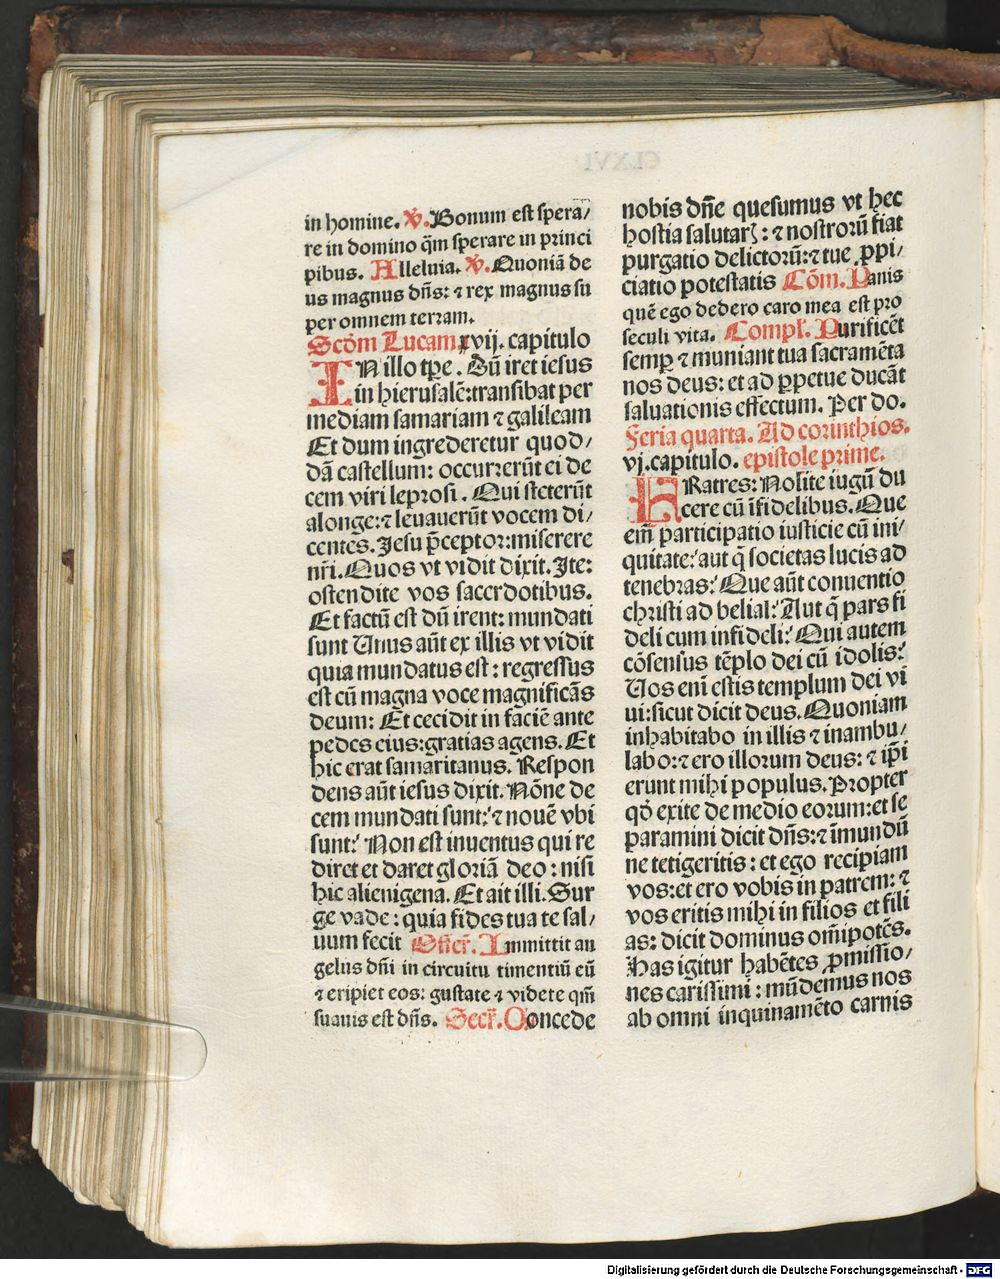 in homine. ℣. Bonum est sperā/
re in domino q̄m sperare in princi
pibus. Alleluia. ℣. Quoniā de
us magnus dn̄s: ⁊ rex magnus su
per omnem terram.
Scd̄m Lucam xvij. capitulo
IN illo tp̄e. Dū iret iesus
in hierusalē: transibat per
mediam samariam ⁊ galileam
Et dum ingrederetur quod/
dā castellum: occurrerūt ei de
cem viri leprosi. Qui steterūt
alonge: ⁊ leuauerūt vocem di/
centes. Jesu p̄ceptor: miserere
nr̄i. Quos vt vidit dixit. Ite:
ostendite vos sacerdotibus.
Et factū est dū irent: mundati
sunt Unus aūt ex illis vt vidit
quia mundatus est: regressus
est cū magna voce magnificās
deum: Et cecidit in faciē ante
pedes eius: gratias agens. Et
hic erat samaritanus. Respon
dens aūt iesus dixit. Nōne de
cem mundati sunt: ⁊ nouē vbi
sunt: Non est inuentus qui re
diret et daret gloriā deo: nisi
hic alienigena. Et ait illi. Sur
ge vade: quia fides tua te sal/
uum fecit Offer̄. Immittit an
gelus dn̄i in circuitu timentiū eū
⁊ eripiet eos: gustate ⁊ videte qm̄
suauis est dn̄s. Secr̄. Concede
nobis dn̄e quesumus vt hec
hostia salutarꝭ: ⁊ nostrorū fiat
purgatio delictorū: ⁊ tue ꝓpi/
ciatio potestatis Cōm. Panis
quē ego dedero caro mea est pro
seculi vita. Compl̄. Purificēt
semꝑ ⁊ muniant tua sacramēta
nos deus: et ad ꝑpetue ducāt
saluationis effectum. Per do.
Feria quarta. Ad corinthios.
vj. capitulo. epistole prime.
FRatres: Nolite iugū du
cere cū īfidelibus. Que
em̄ participatio iusticie cū ini/
quitate: aut q̄ societas lucis ad
tenebras: Que aūt conuentio
christi ad belial: Aut q̄ pars fi
deli cum infideli: Qui autem
cōsensus tēplo dei cū idolis:
Uos enī estis templum dei vi
ui: sicut dicit deus. Quoniam
inhabitabo in illis ⁊ inambu/
labo: ⁊ ero illorum deus: ⁊ ip̄i
erunt mihi populus. Propter
qd̄ exite de medio eorum: et se
paramini dicit dn̄s: ⁊ īmundū
ne tetigeritis: et ego recipiam
vos: et ero vobis in patrem: ⁊
vos eritis mihi in filios et fili
as: dicit dominus om̄ipotēs.
Has igitur habētes ꝓmissio/
nes carissimi: mūdemus nos
ab omni inquinamēto carnis
Digitalisierung gefördert durch die Deutsche Forschungsgemeinschaft - DFG